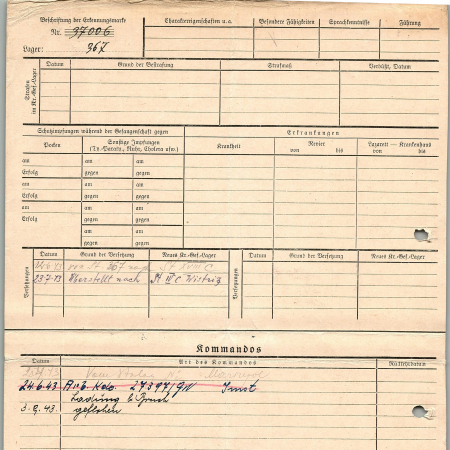 Beschriftung der Erkennungsmarke
Nr. 37006
Lager: 367
Charaktereigenschaften u.a.
Besondere Fähigkeiten
Sprachkenntnisse
Führung
Strafen im Kr.-Gef.-Lager
Datum
Grund der Bestrafung
Strafmaß
Verbüßt, Datum
Schutzimpfungen während der Gefangenschaft gegen
Erkrankungen
Pocken
Sonstige Impfungen
(Ty.-Paraty., Ruhr, Cholera usw.)
Krankheit
Revier
von bis
Lazarett — Krankenhaus
von bis
am am am
Erfolg gegen gegen
am am am
Erfolg gegen gegen
am am am
Erfolg gegen gegen
am am
gegen gegen
Versetzungen
Datum
Grund der Versetzung
Neues Kr.-Gef.-Lager
Versetzungen
Datum
Grund der Versetzung
Neues Kr.-Gef.-Lager
367 nach St
23.7.43 überstellt nach St IV C Wistritz
Kommandos
Datum
Art des Kommandos
Rückkehrdatum
24.6.43. Arb. Kdo.
3.9.43. geflohen